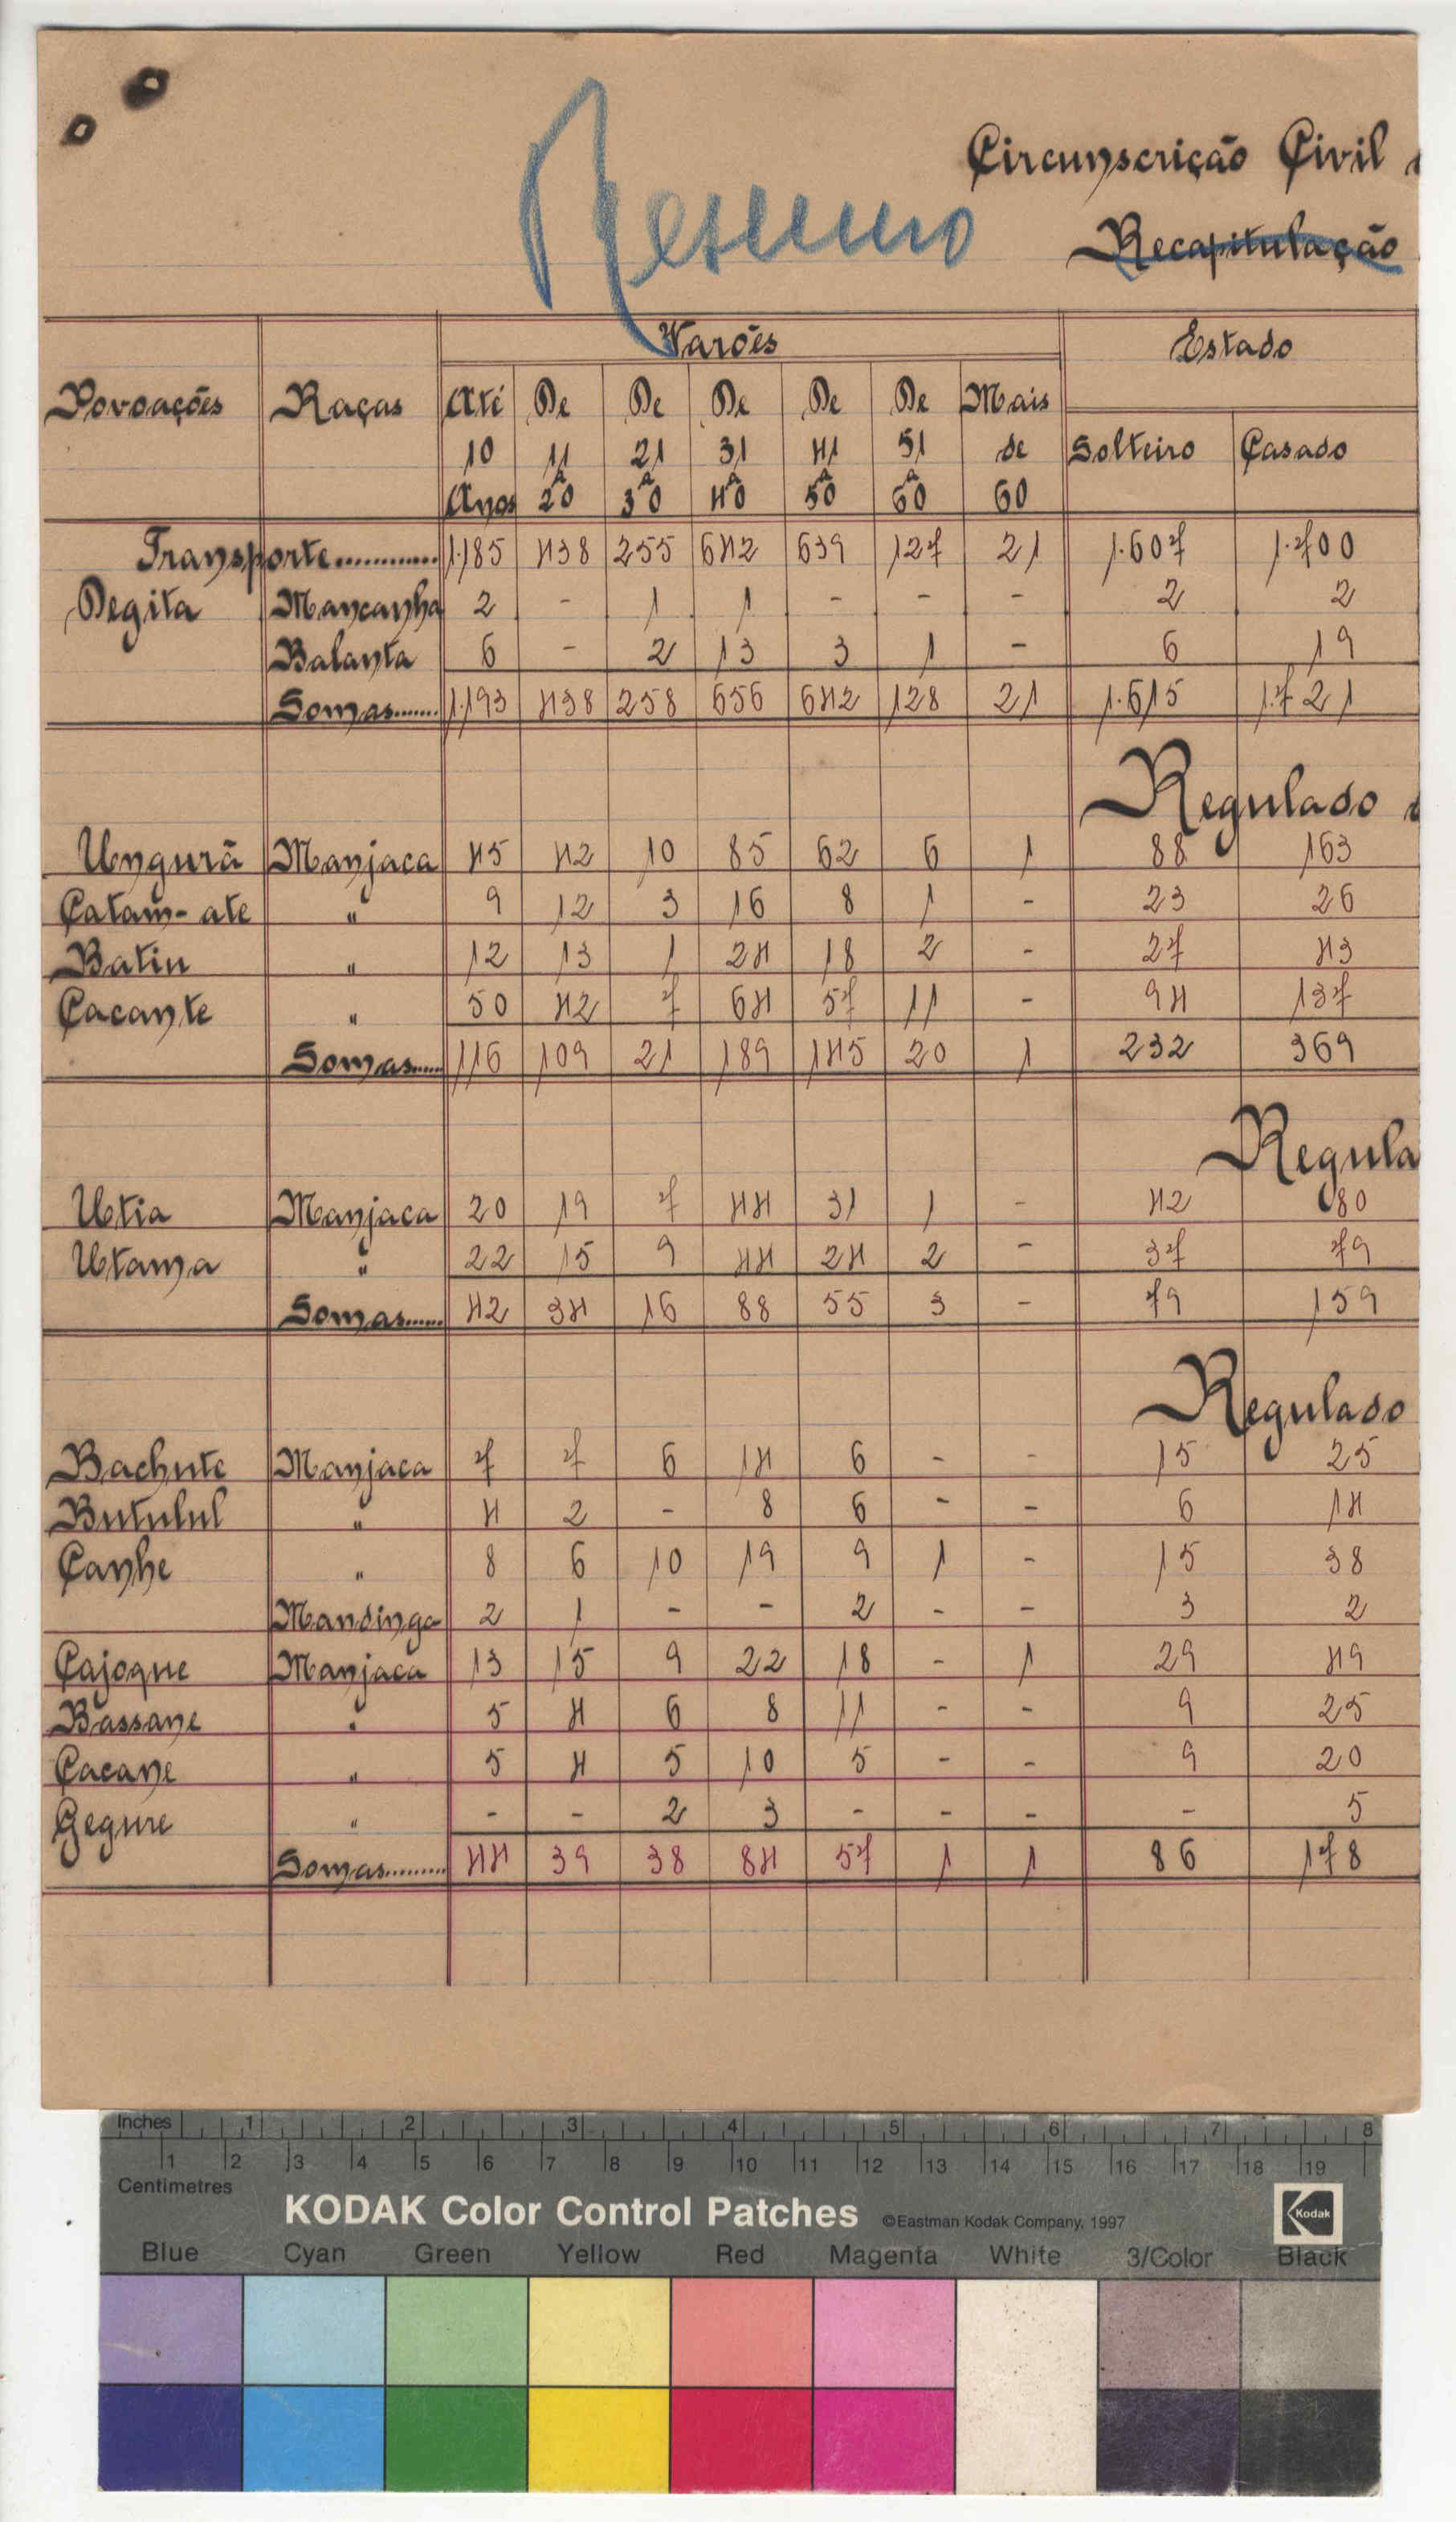 Resumo
Circunscrição Civil
Recapitulação
Varões Estado
Povoações Raças Até De De De De De Mais
10 11 21 31 41 51 de Solteiro Casado
a a a a a
Anos 20 30 40 50 60 60
Transporte............ 1.185 438 255 642 639 127 21 1.607 1.700
Degita Mancanha 2 - 1 1 - - - 2 2
Balanta 6 - 2 13 3 1 - 6 19
Somas....... 1.193 438 258 656 642 128 21 1.615 1.721
Regulado
Ungurã Manjaca 45 42 10 85 62 6 1 88 163
Catam-ate " 9 12 3 16 8 1 - 23 26
Batin " 12 13 1 24 18 2 - 27 43
Cacante " 50 42 7 64 57 11 - 94 137
Somas...... 116 109 21 189 145 20 1 232 369
Regula
Utia Manjaca 20 19 7 44 31 1 - 42 80
Utama " 22 15 9 44 24 2 - 37 79
Somas...... 42 34 16 88 55 3 - 79 159
Regulado
Bachute Manjaca 7 7 6 14 6 - - 15 25
Butulul " 4 2 - 8 6 - - 6 14
Canhe " 8 6 10 19 9 1 - 15 38
Mandinga 2 1 - - 2 - - 3 2
Cajoque Manjaca 13 15 9 22 18 - 1 29 49
Bassane " 5 4 6 8 11 - - 9 25
Cacane " 5 4 5 10 5 - - 9 20
Gegure " - - 2 3 - - - - 5
Somas......... 44 39 38 84 57 1 1 86 178
Inches 1 2 3 4 5 6 7 8
1 2 3 4 5 6 7 8 9 10 11 12 13 14 15 16 17 18 19
Centimetres
KODAK Color Control Patches ©Eastman Kodak Company, 1997 Kodak
Blue Cyan Green Yellow Red Magenta White 3/Color Black